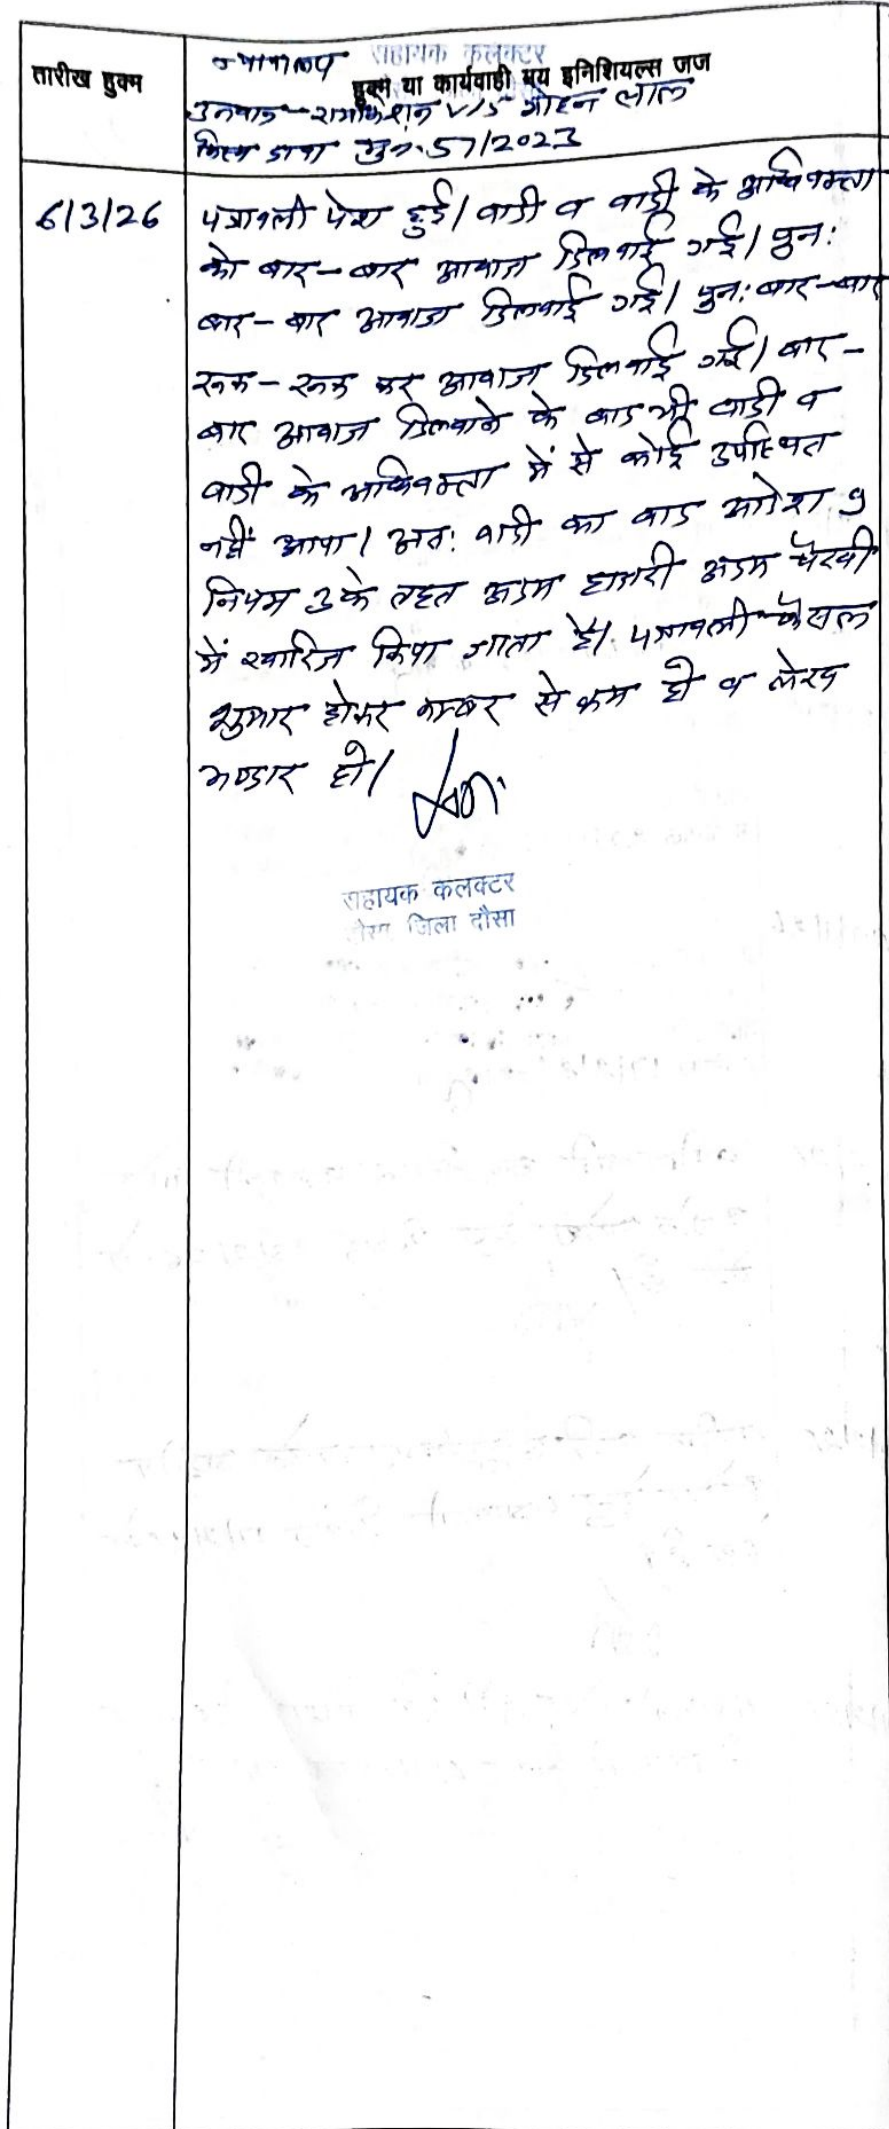 तारीख हुक्म
न्यायालय सहायक कलक्टर
हुक्म या कार्यवाही मय इनिशियल्स जज
उनवान - रामकिशन V/S मोहन लाल
किस्म दावा मु.न. 57/2023
6/3/26
पत्रावली पेश हुई। वादी व वादी के अधिवक्ता
को बार-बार आवाज दिलवाई गई। पुनः
बार-बार आवाज दिलवाई गई। पुनः बार-बार
रूक-रूक कर आवाज दिलवाई गई। बार-
बार आवाज दिलवाने के बाद भी वादी व
वादी के अधिवक्ता में से कोई उपस्थित
नहीं आया। अतः वादी का वाद आदेश 9
नियम 3 के तहत अदम हाजरी अदम पैरवी
में खारिज किया जाता है। पत्रावली फैसल
शुमार होकर नम्बर से कम हो व लेख
भण्डार हो।
सहायक कलक्टर
दौसा जिला दौसा